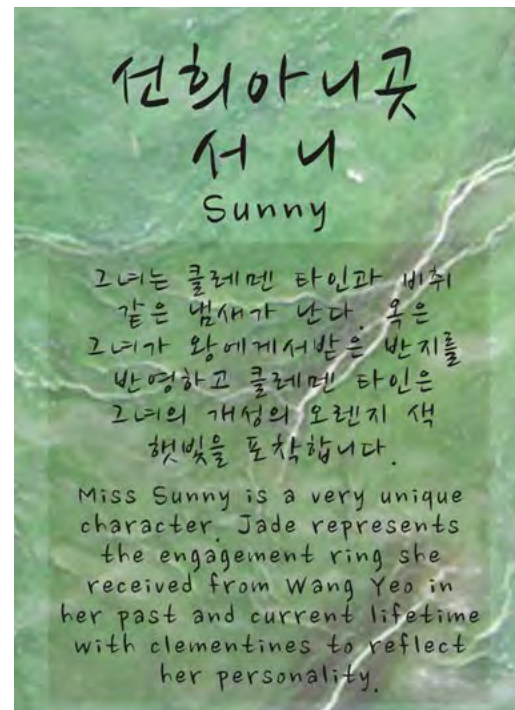 선희아니곳
서 니
Sunny
그녀는 클레멘 타인과 비취
같은 냄새가 난다. 옥은
그녀가 왕에게서받은 반지를
반영하고 클레멘 타인은
그녀의 개성의 오렌지 색
햇빛을 포착합니다.
Miss Sunny is a very unique
character. Jade represents
the engagement ring she
received from Wang Yeo in
her past and current lifetime
with clementines to reflect
her personality.